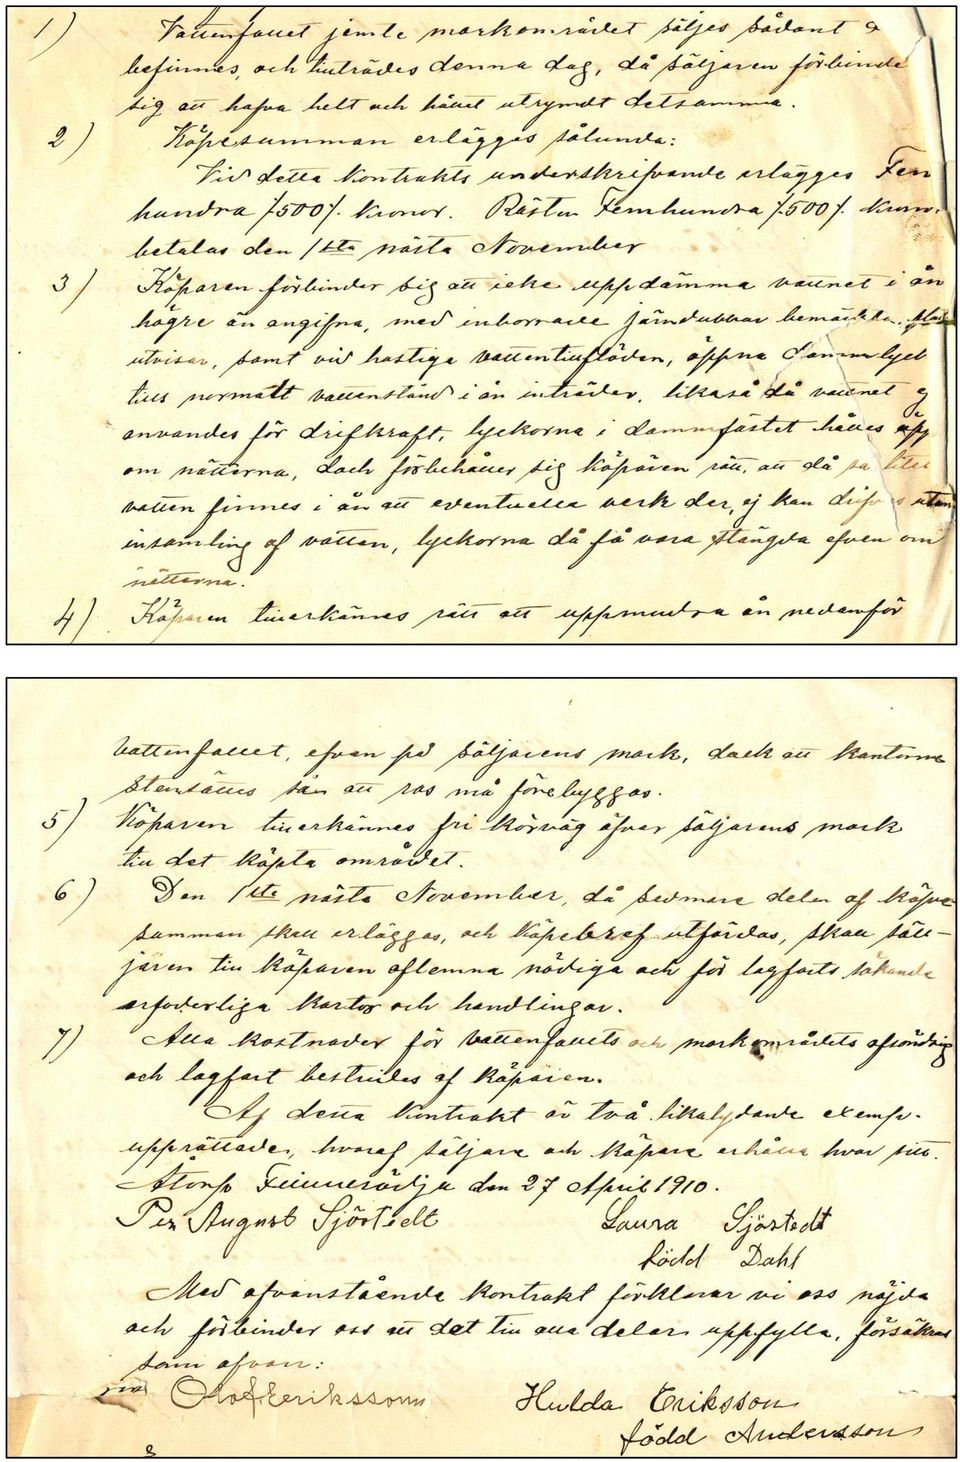 1) Vattenfallet jemte markområdet säljes sådant d
befinnes, och tillträdes denna dag, då säljaren förbinde
sig att hafva helt och hållet utrymdt detsamma.
2) Köpesumman erlägges sålunda:
Vid detta Kontrakts underskrifvande erlägges Fem
hundra /500/. Kronor. Resten Femhundra /.500/. Kronor
betalas den 1sta nästa November
3) Köparen förbinder sig att icke uppdämma vattnet i ån
högre än angifna, med inborrade järndubbar bemärkta,
utvisar, samt vid hastiga vattentillflöden, öppna dammlyck
tills normalt vattenstånd i ån inträder, likaså då vattnet ej
användes för drifkraft, lyckorna i dammfästet hålles öpp
om nätterna, dock förbehåller sig Köparen rätt, att då så litet
vatten finnes i ån att eventuella verk der, ej kan drifvas utan
insamling af vatten, lyckorna då få vara stängda äfven om
nätterna.
4) Köparen tillerkännes rätt att uppmudra ån nedanför
Vattenfallet, äfven på säljarens mark, dock att kanterna
stensättes så att ras må förebyggas.
5) Köparen tillerkännes fri körväg öfver säljarens mark
till det köpta området.
6) Den 1sta nästa November, då sednare delen af köpe
summan skall erläggas, och Köpebref utfärdas, skall säl-
jaren till Köparen aflemna nödiga och för lagfarts sökande
erfoderliga kartor och handlingar.
7) Alla kostnader för vattenfallets och markområdets afsöndring
och lagfart bestrides af Köparen.
Af detta Kontrakt är två likalydande exemp.
upprättade, hvaraf säljare och köpare erhålla hvar sitt.
Åtorp Finnerödja den 27 April 1910.
Per August Sjöstedt Laura Sjöstedt
född Dahl
Med ofvanstående Kontrakt förklarar vi oss nöjda
och förbinder oss att det till alla delar uppfylla, försäkras
som ofvan:
Olof Erikssonn Hulda Eriksson
född Andersson